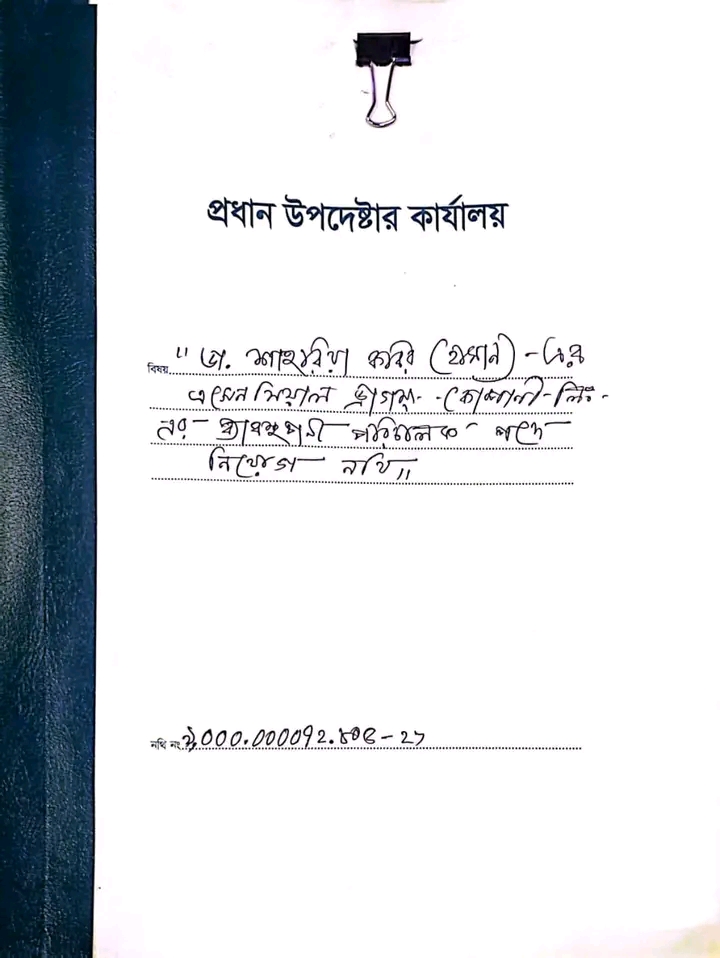 প্রধান উপদেষ্টার কার্যালয়
বিষয় "ডা. শাহরিয়া কবির (হাসান) - এর
এসেনসিয়াল ড্রাগস্ কোম্পানী লিঃ
এর ব্যবস্থাপনা পরিচালক পদে
নিয়োগ নথি"
নথি নং